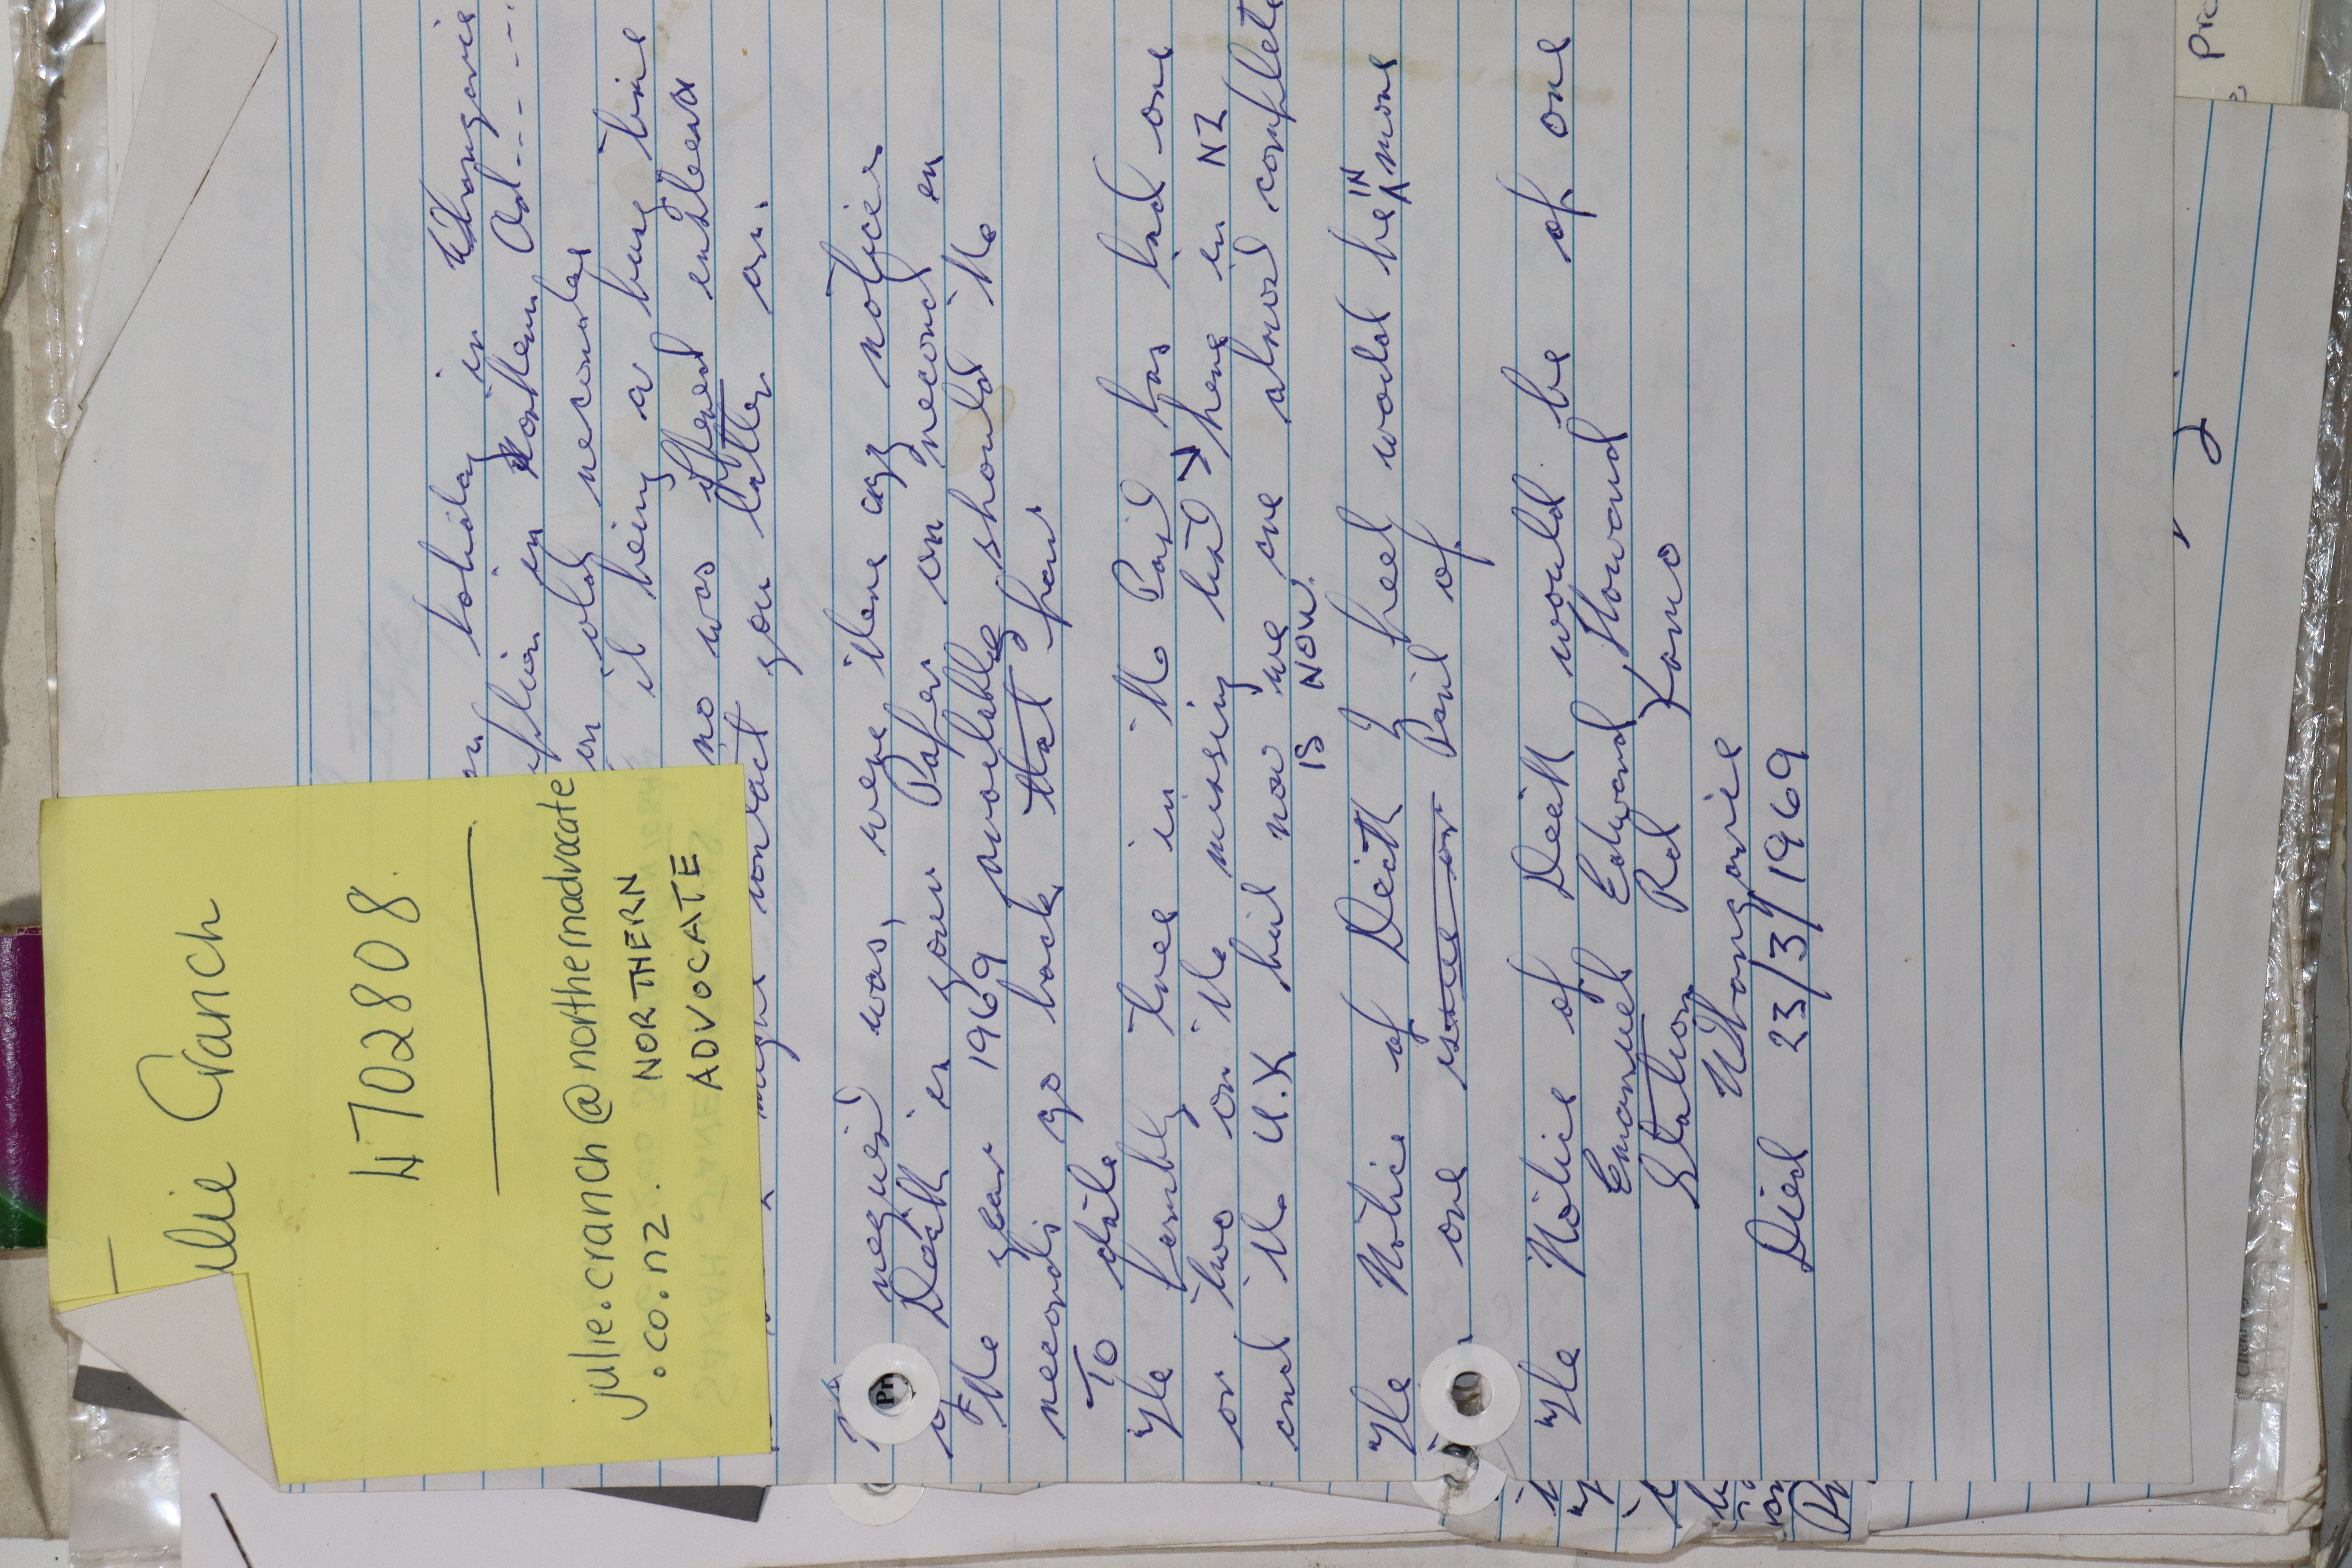 Julie Cranch
4702808.
julie.cranch@northernadvocate
.co.nz.
NORTHERN
ADVOCATE
on holiday in Whangarei
in Northern Ad-----
on old records
it being a busy time
no was offered enterea
might contact you latter on.
request was, were there any notices
of Death in your Paper on record en
The year 1969 probably should the
records go back that far
To date
The family tree in the Paid has had one
or two on the missing list → here in NZ
and the U.K but now we are almost complete
IS NOW.
The Notice of Death I feel would be IN more
one issue or Paid of
The Notice of Death would be of one
Emanuel Edward Howard
Station Rd Kamo
Whangarei
Died 23/3/1969